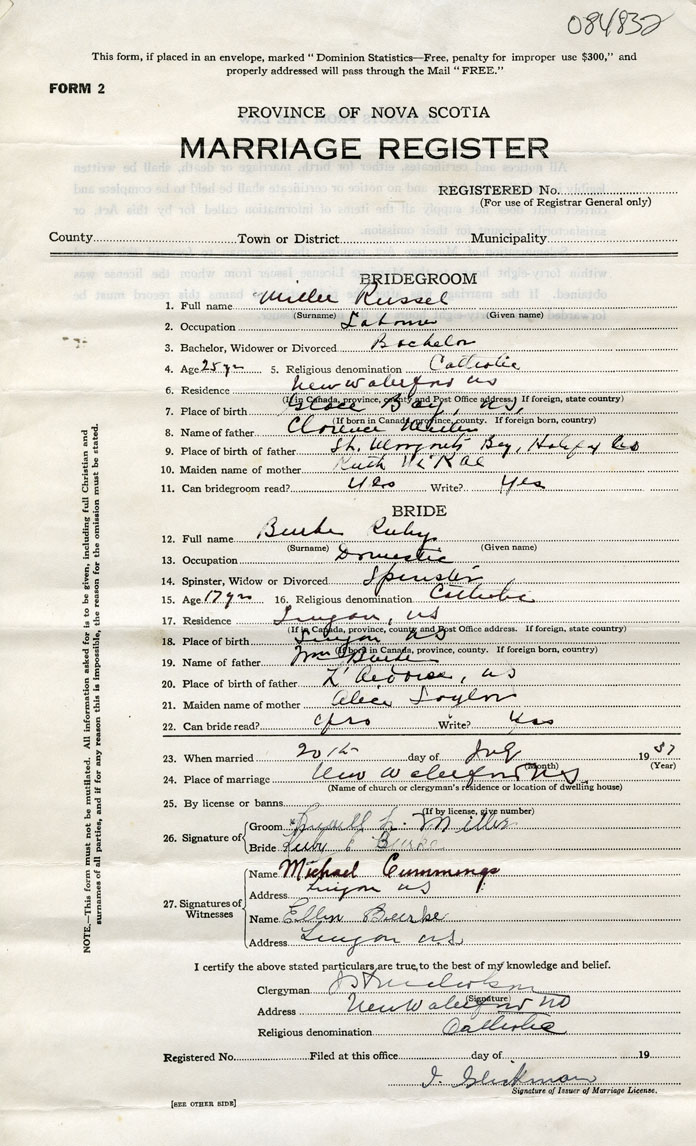 084832
This form, if placed in an envelope, marked "Dominion Statistics—Free, penalty for improper use $300," and
properly addressed will pass through the Mail "FREE."
FORM 2
PROVINCE OF NOVA SCOTIA
MARRIAGE REGISTER
REGISTERED No.
(For use of Registrar General only)
County Town or District Municipality
BRIDEGROOM
1. Full name Miller Russel
(Surname) (Given name)
2. Occupation Labourer
3. Bachelor, Widower or Divorced Bachelor
4. Age 25 yrs 5. Religious denomination Catholic
6. Residence New Waterford NS
(If in Canada, province, county and Post Office address. If foreign, state country)
7. Place of birth Glace Bay, NS,
(If born in Canada, province, county. If foreign born, country)
8. Name of father Clarence Miller
9. Place of birth of father St. Margrets Bay, Halifax Co
10. Maiden name of mother Ruth McRae
11. Can bridegroom read? Yes Write? Yes
BRIDE
12. Full name Burke Ruby
(Surname) (Given name)
13. Occupation Domestic
14. Spinster, Widow or Divorced Spinster
15. Age 17 yrs 16. Religious denomination Catholic
17. Residence Lingan, NS
(If in Canada, province, county and Post Office address. If foreign, state country)
18. Place of birth Lingan NS
(If born in Canada, province, county. If foreign born, country)
19. Name of father Wm Burke
20. Place of birth of father L'Ardoise, NS
21. Maiden name of mother Alice Taylor
22. Can bride read? Yes Write? Yes
23. When married 20th day of July 1937
(Month) (Year)
24. Place of marriage New Waterford NS
(Name of church or clergyman's residence or location of dwelling house)
25. By license or banns
(If by license, give number)
26. Signature of
Groom Russell L. Miller
Bride Ruby E Burke
27. Signatures of Witnesses
Name Michael Cummings
Address Lingan NS
Name Ellen Burke
Address Lingan N.S.
I certify the above stated particulars are true, to the best of my knowledge and belief.
Clergyman
(Signature)
Address New Waterford NS
Religious denomination Catholic
Registered No. Filed at this office day of 19
Signature of Issuer of Marriage License.
[SEE OTHER SIDE]
NOTE.—This form must not be mutilated. All information asked for is to be given, including full Christian and
surnames of all parties, and if for any reason this is impossible, the reason for the omission must be stated.